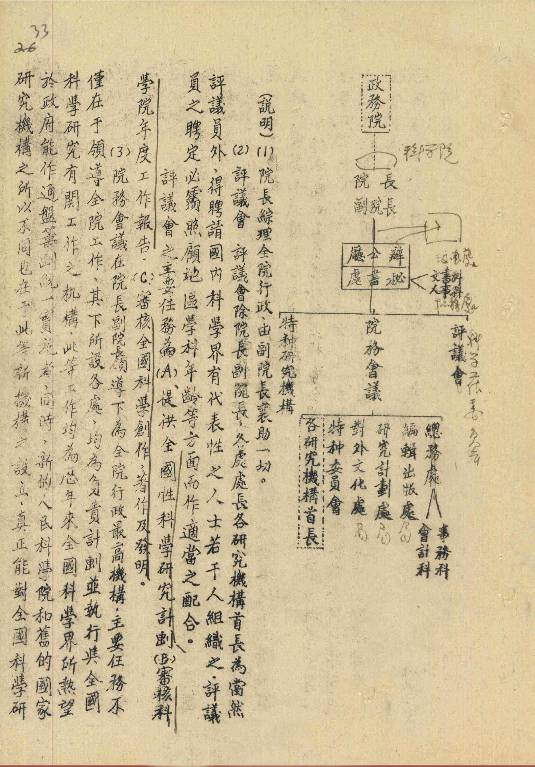 33
26
政務院
科学院
院長
副院長
辦公廳
秘書處
評議會
院務會議
特种研究機構
總務處
事務科
會計科
編輯出版處
研究計劃處
對外文化處
特种委員會
各研究機構首長
(說明)(1)院長綜理全院行政、由副院長襄助一切。
(2)評議會 評議會除院長副院長,各處處長各研究機構首長為當然
評議員外、得聘請國內科學界有代表性之人士若干人組織之、評議
員之聘定必需照顧地區學科年齡等方面而作適當之配合。
評議會之主要任務為(A)提供全國性科學研究計劃(B)審核科
學院年度工作報告(C)審核全國科學創作、著作及發明。
(3)院務會議在院長副院長領導下為全院行政最高機構、主要任務不
僅在于領導全院工作、其下所設各處、均為負責計劃並執行與全國
科學研究有關工作之機構、此等工作均為近年來全國科學界所熱望
於政府能作通盤籌劃統一實施者、同時、新的人民科學院和舊的國家
研究機構之所以不同也在于此等新機構之設立、真正能對全國科學研